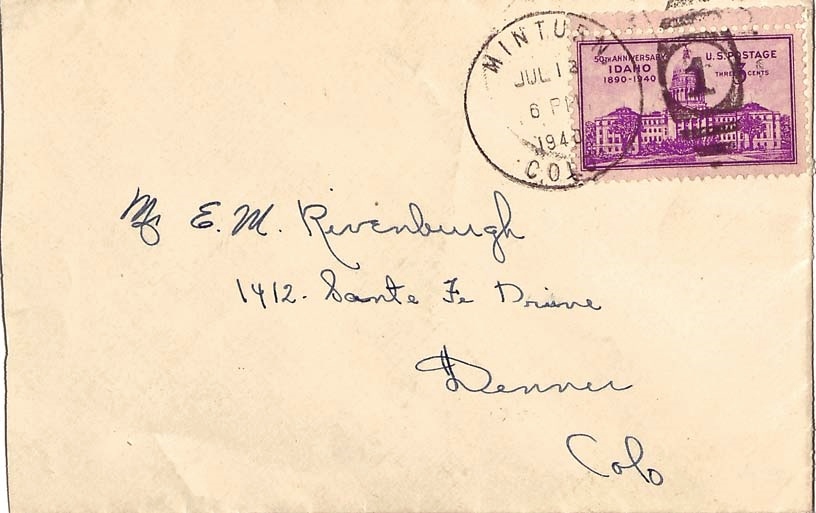 MINTURN
JUL 13
6 PM
1940
COL
50TH ANNIVERSARY
IDAHO
1890-1940
U.S. POSTAGE
THREE 3 CENTS
1
Mr E. M. Rivenburgh
1412. Sante Fe Drive
Denver
Colo